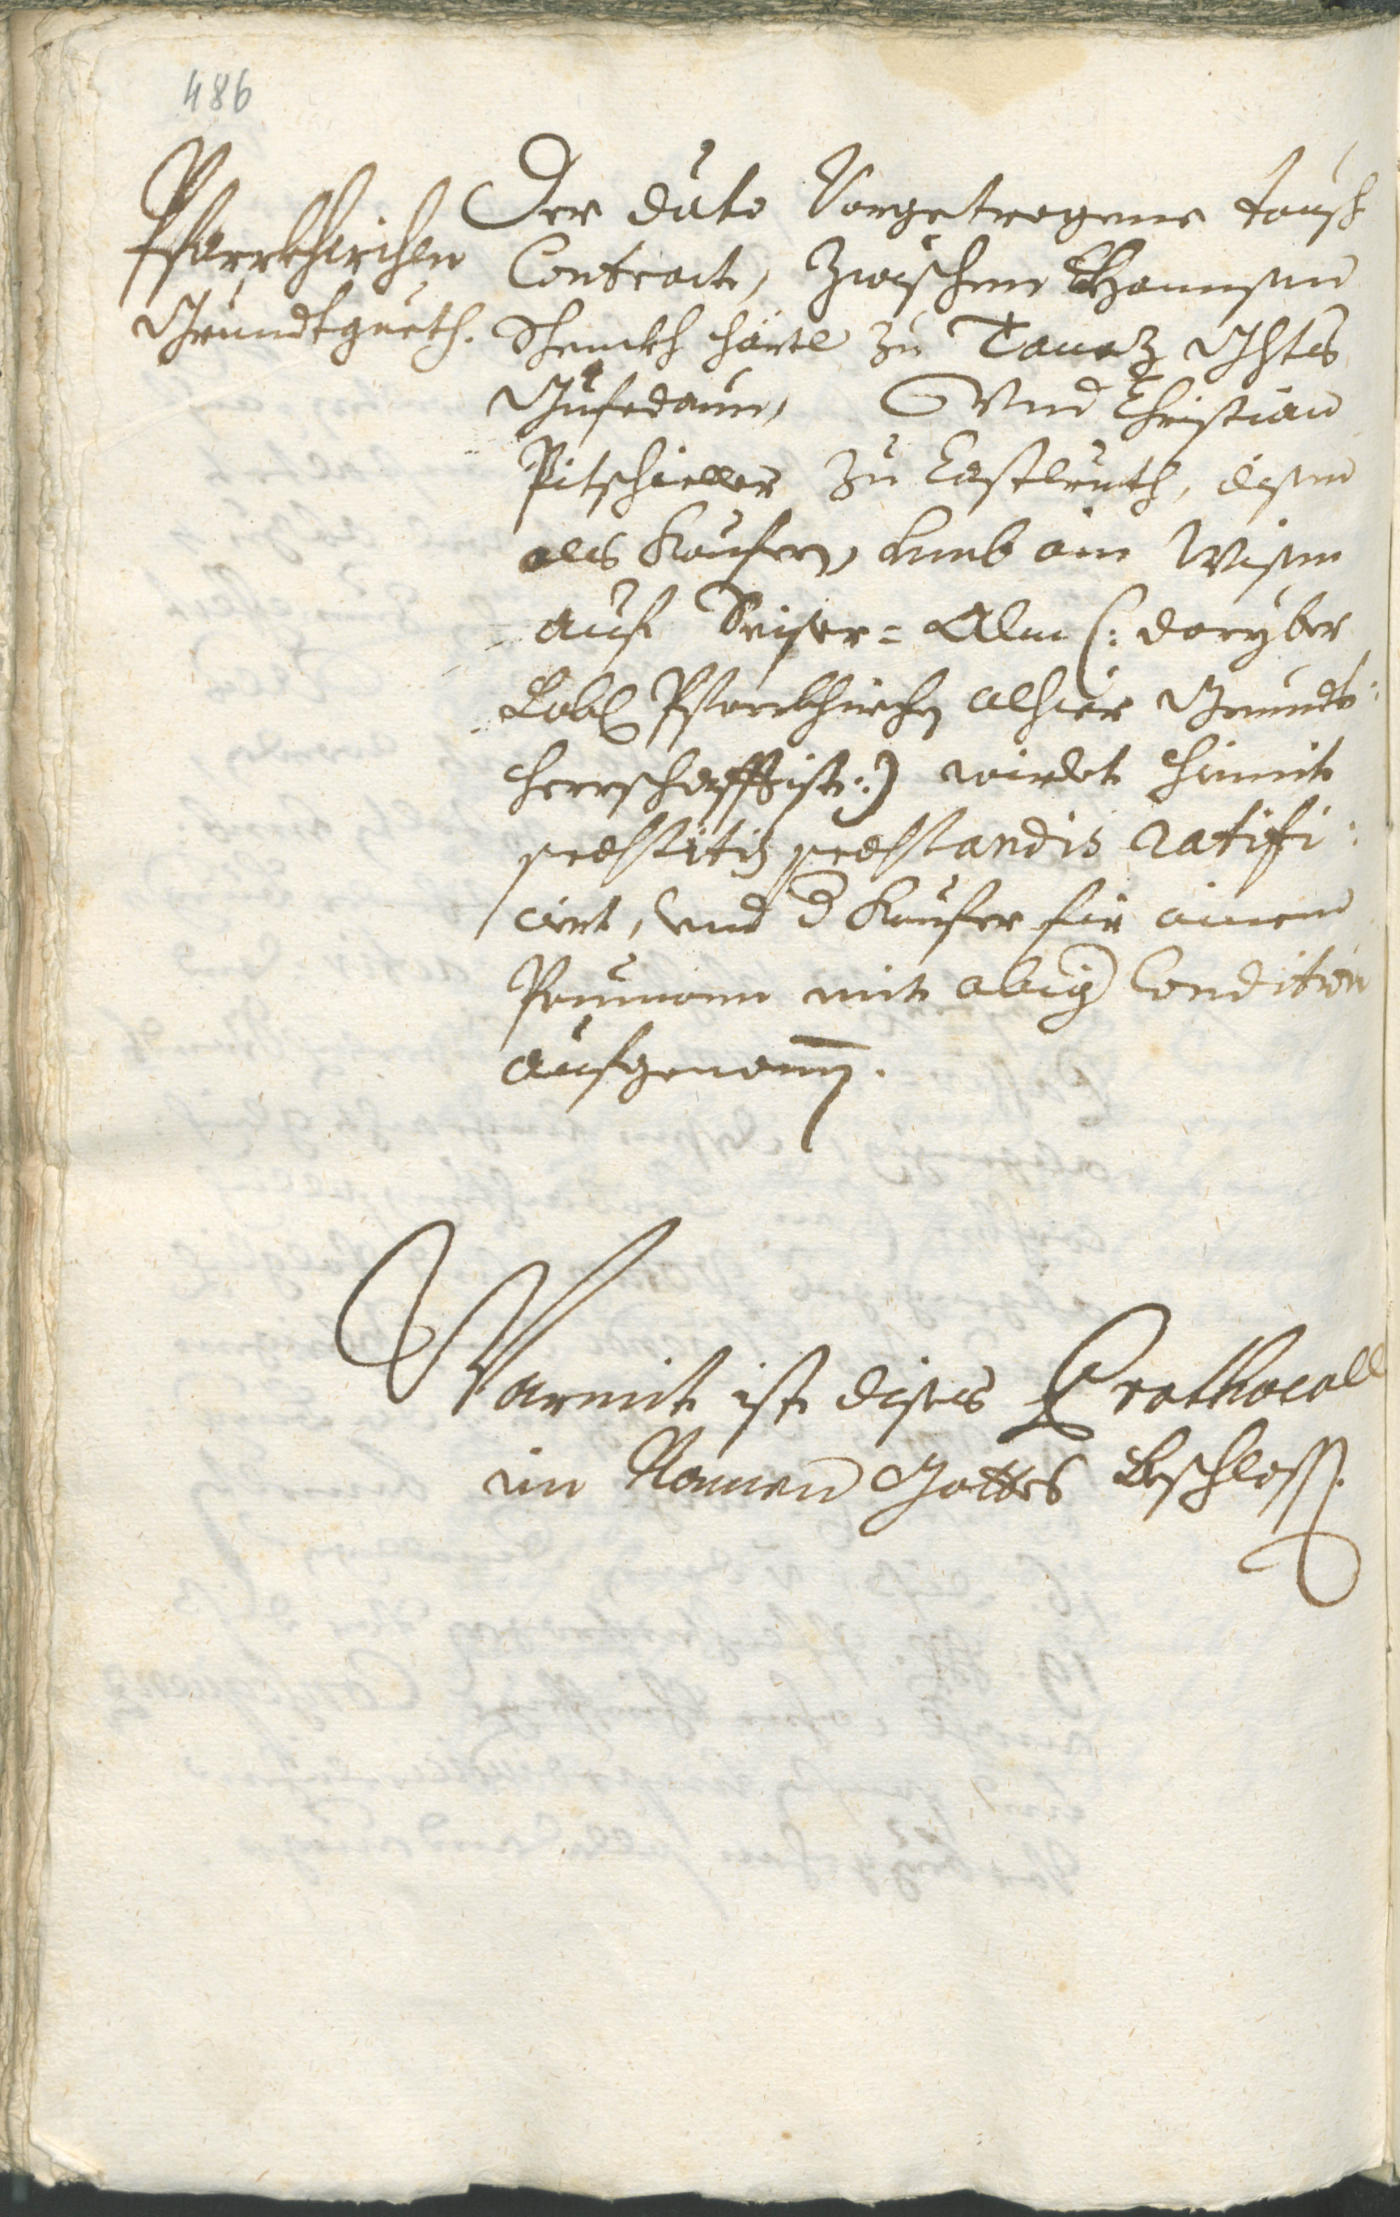 486
Pfarrkhirchen
Grundtgueth.
Der dato Vorgetragene Kauf
Contract, zwischen Hannsen
Schenckh zu Tanaz Ghts
Gufedaun, Und Christian
Pitschieller zu Castlruth, disem
als Kaufern, umb ain Wisen
auf Seiser=Alm (: daryber
Löbl Pfarrkhirchen alhier Grundt:
herrschafft ist :) wirdet hiemit
praestitis praestandis ratifi:
ciert, und d Kaufer für ainen
Paumann mit obig Condition
aufgenomen.
Warmit ist dises Prothocoll
im Namen Gottes Beschlossen.